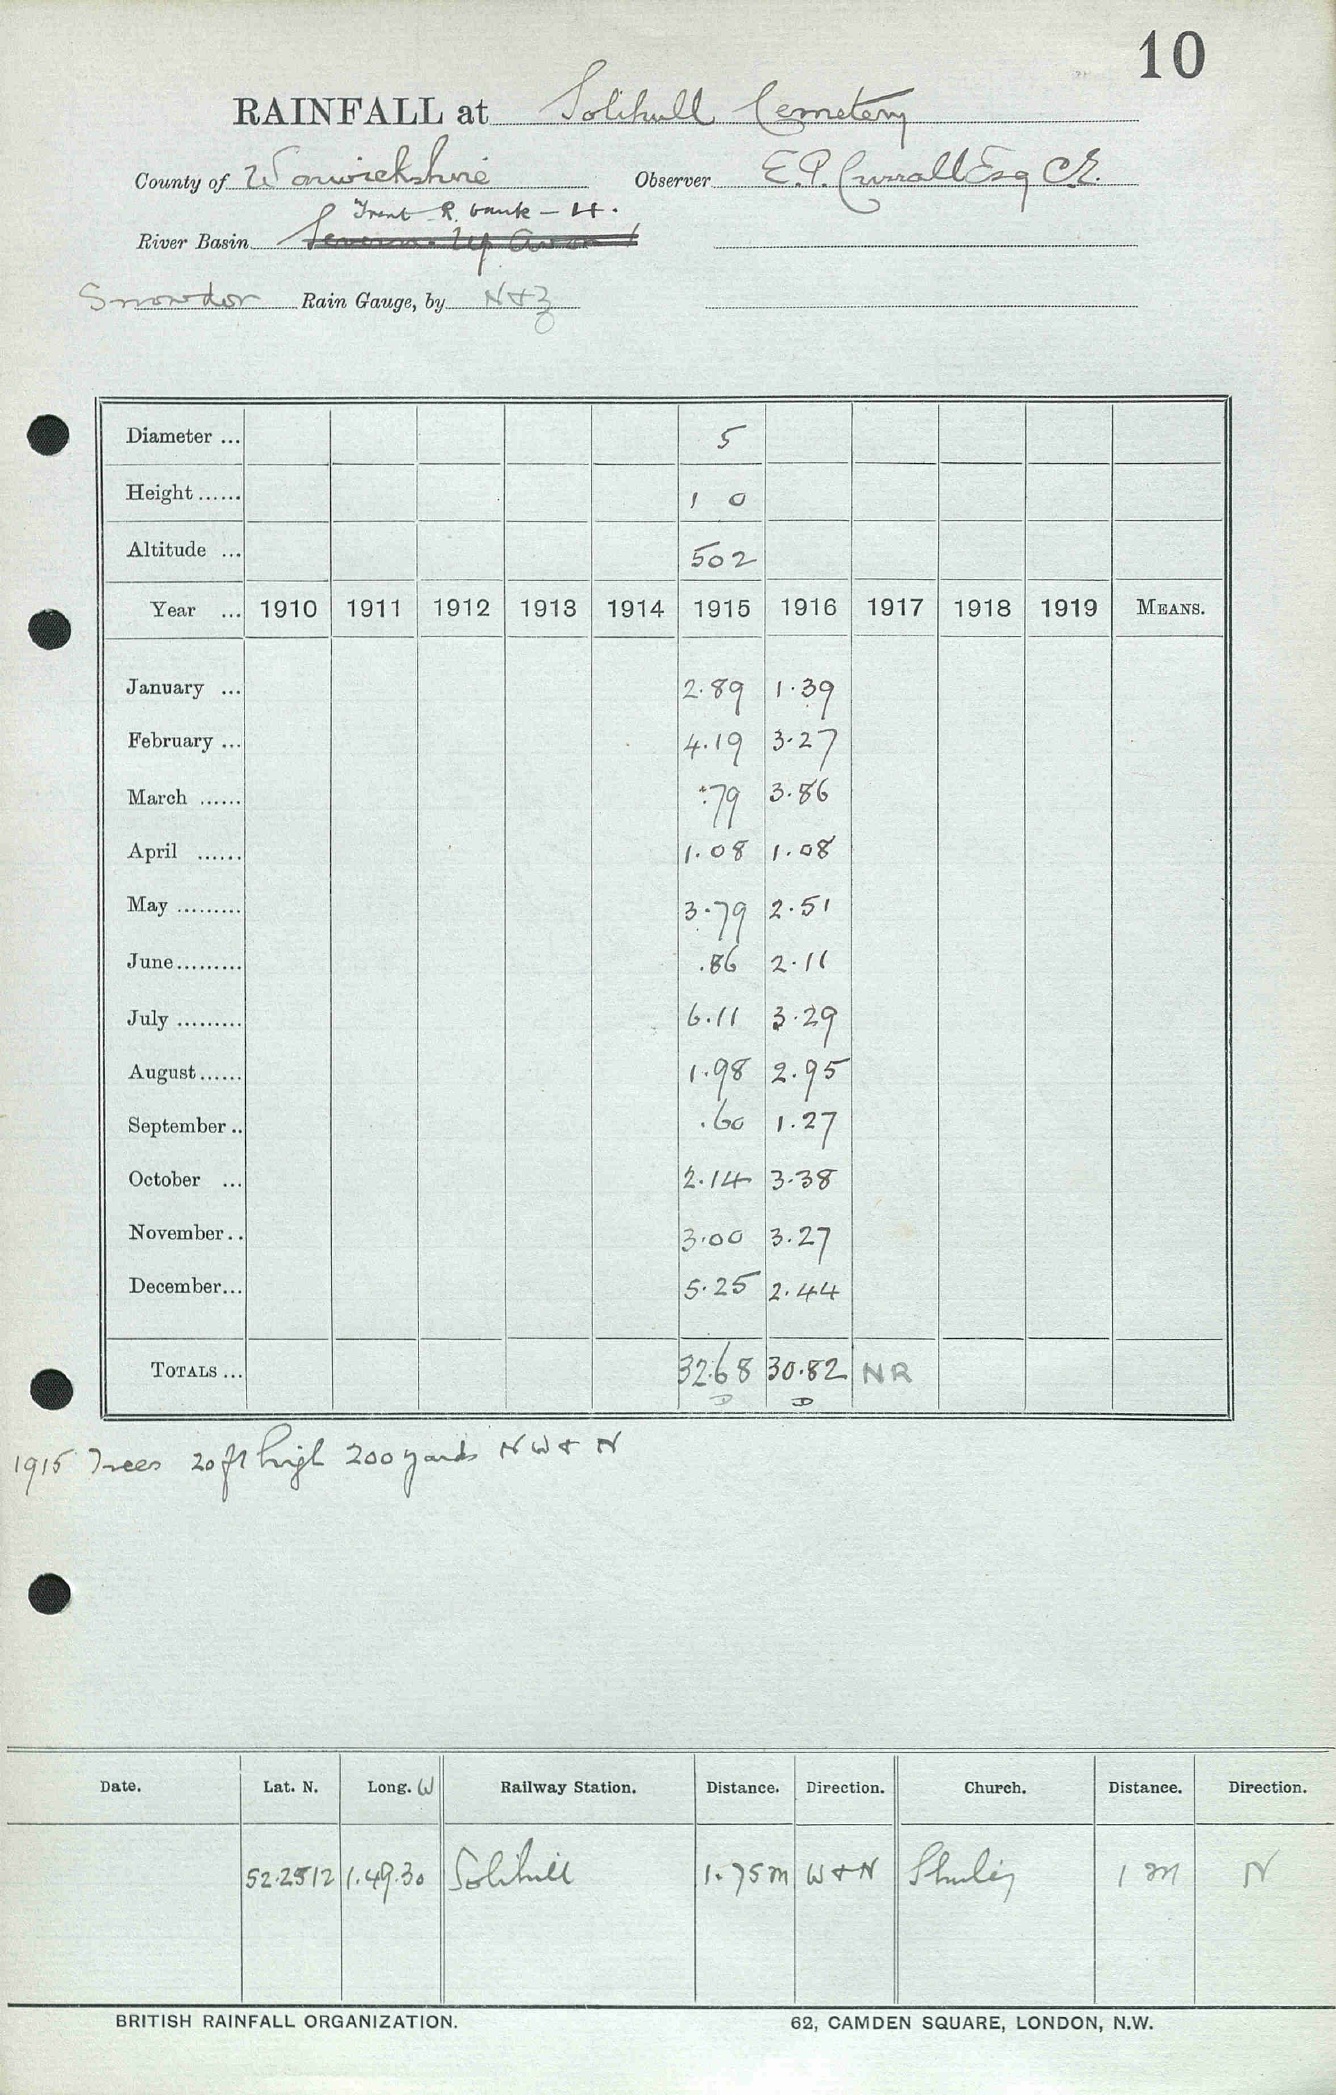 10
RAINFALL at Solihull Cemetery
County of Warwickshire Observer E. P. Currall Esq C.E.
Trent R. bank - 4.
River Basin Severn. Up. Avon
Snowdon Rain Gauge, by N & Z
Diameter ... 5
Height ...... 1 0
Altitude ... 502
Year ... 1910 1911 1912 1913 1914 1915 1916 1917 1918 1919 MEANS.
January ... 2.89 1.39
February ... 4.19 3.27
March ...... .79 3.86
April ...... 1.08 1.08
May ......... 3.79 2.51
June......... .86 2.11
July ......... 6.11 3.29
August...... 1.98 2.95
September .. .60 1.27
October ... 2.14 3.38
November.. 3.00 3.27
December... 5.25 2.44
TOTALS ... 32.68 30.82 NR
D D
1915 Trees 20 ft high 200 yards NW & N
Date. Lat. N. Long. W Railway Station. Distance. Direction. Church. Distance. Direction.
52.25 12 1.49.30 Solihull 1.75 m W & N Shirley 1 m N
BRITISH RAINFALL ORGANIZATION. 62, CAMDEN SQUARE, LONDON, N.W.